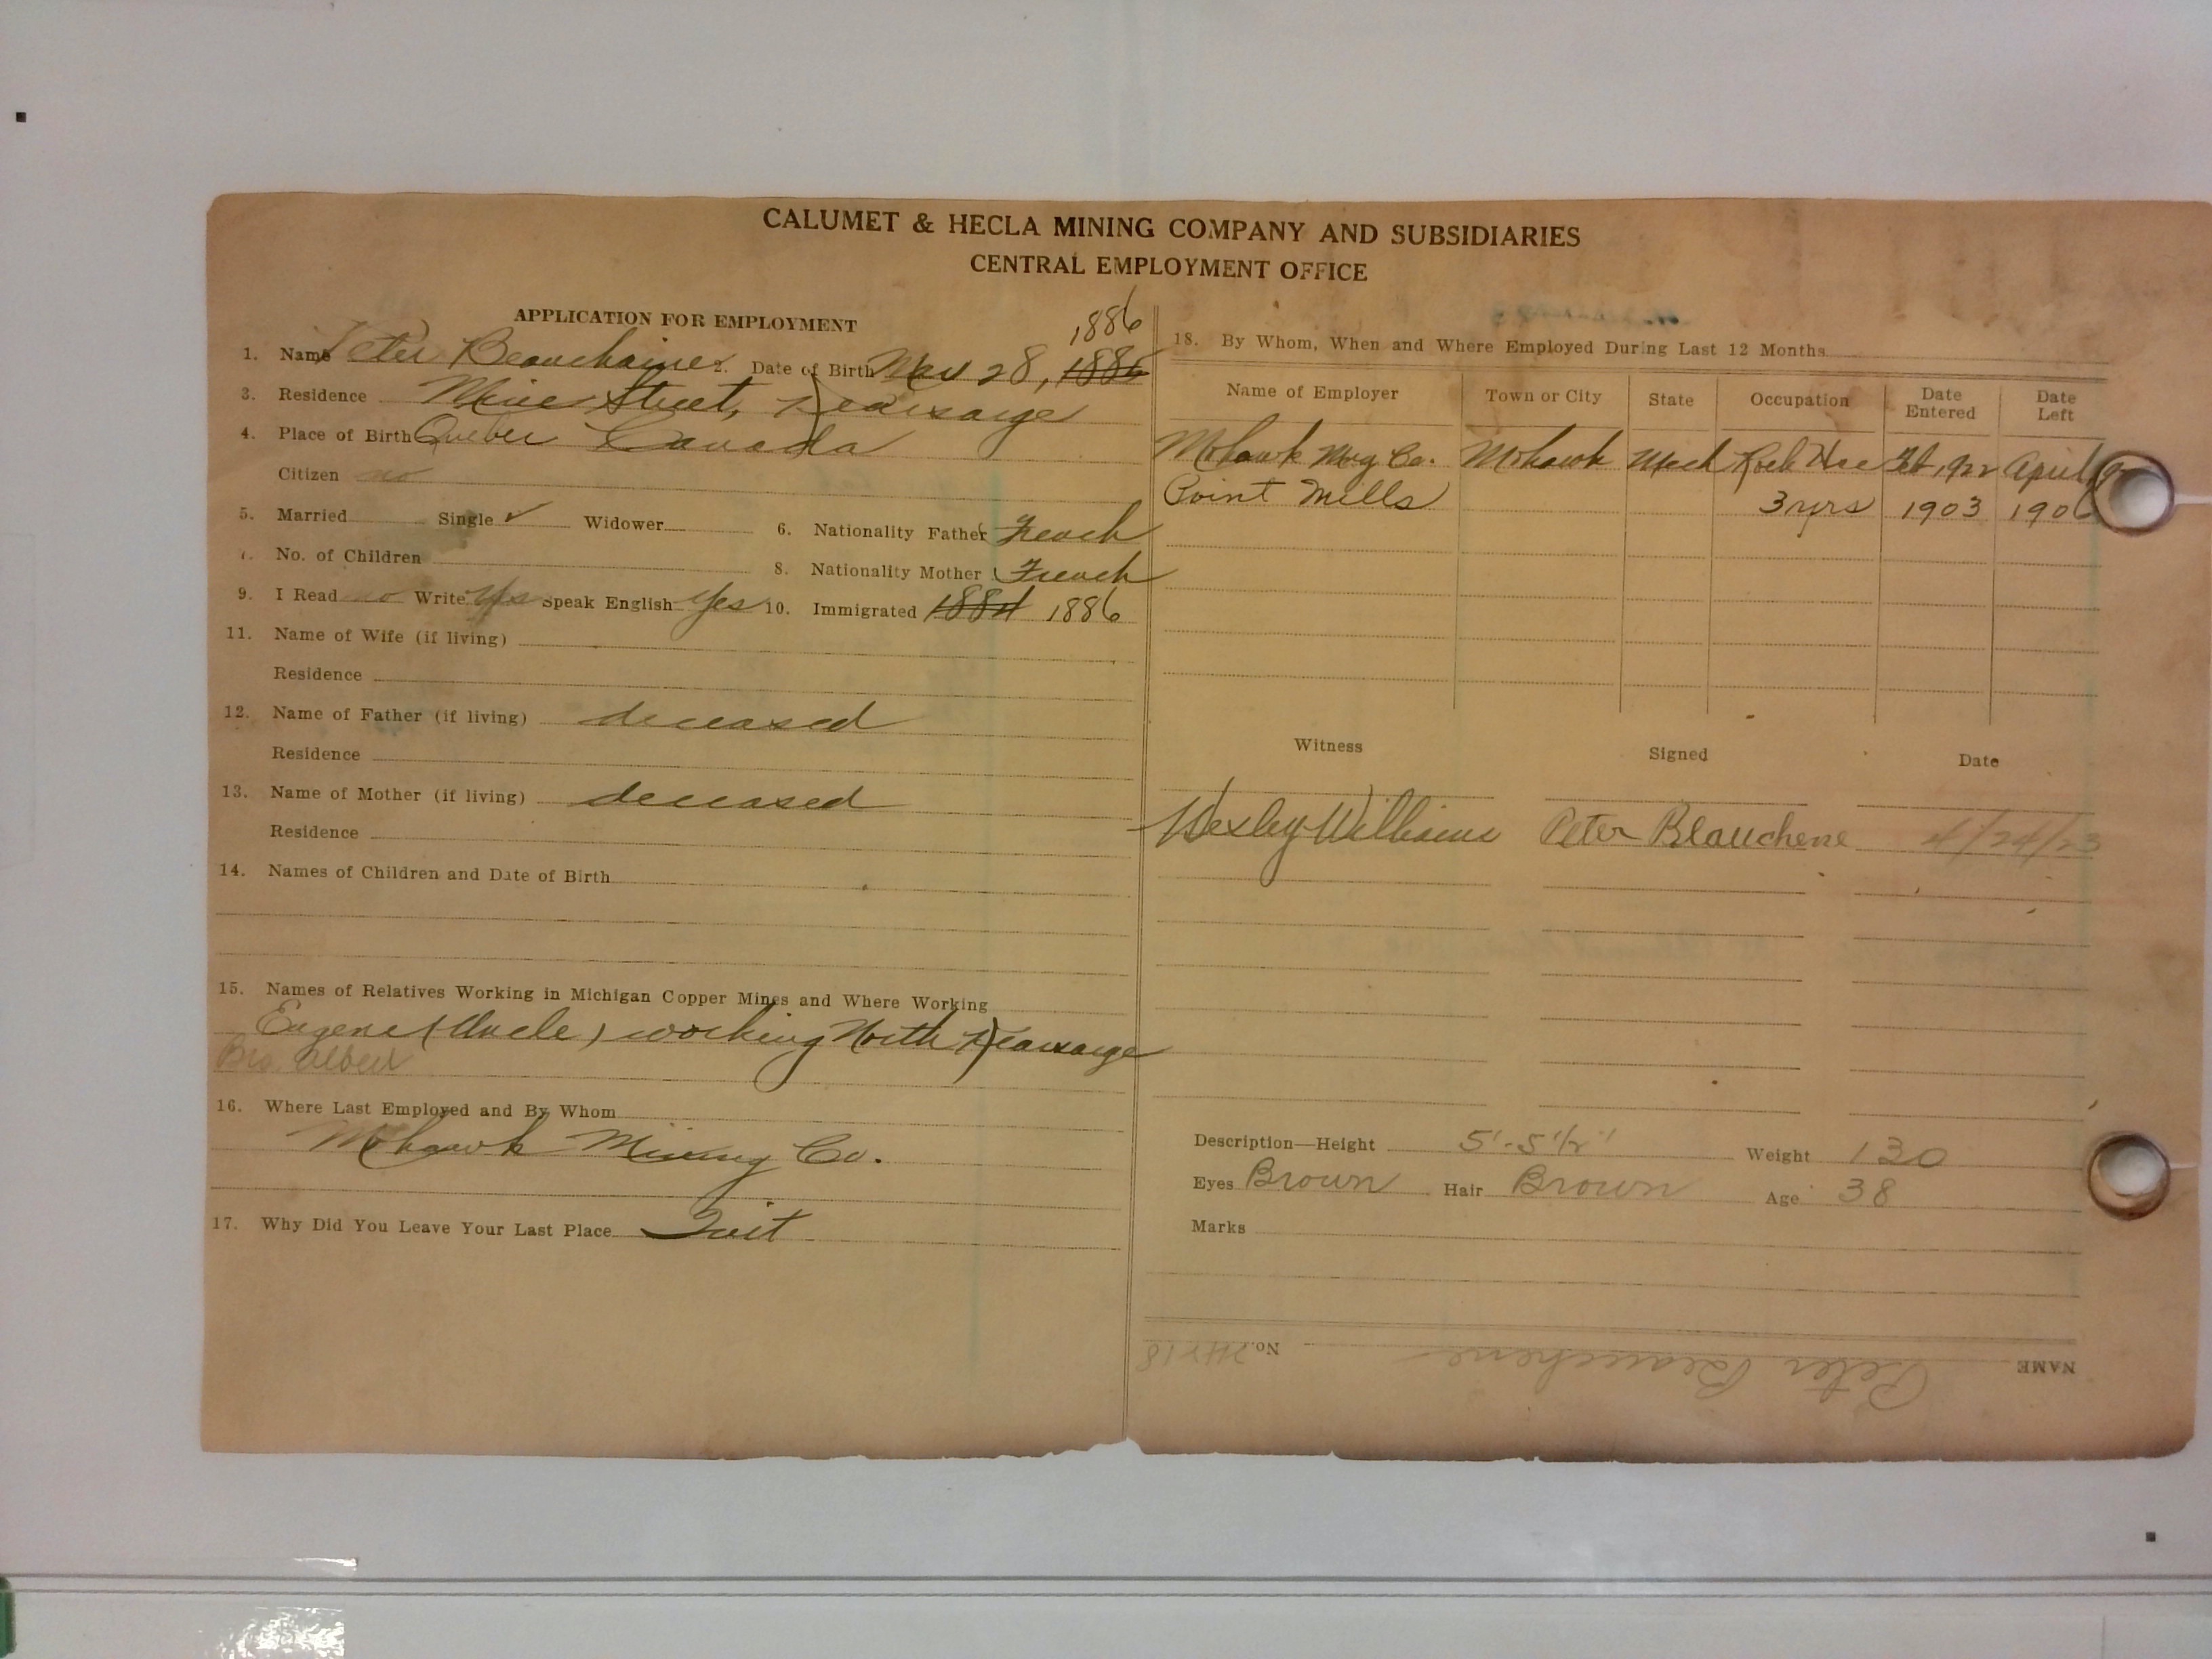 CALUMET & HECLA MINING COMPANY AND SUBSIDIARIES
CENTRAL EMPLOYMENT OFFICE
APPLICATION FOR EMPLOYMENT
1886
1. Name Peter Beauchaine 2. Date of Birth 28, 1886
3. Residence Mine Street, Kearsarge
4. Place of Birth Quebec Canada
Citizen no
5. Married Single ✓ Widower 6. Nationality Father French
7. No. of Children 8. Nationality Mother French
9. I Read no Write yes Speak English yes 10. Immigrated 1884 1886
11. Name of Wife (if living)
Residence
12. Name of Father (if living) deceased
Residence
13. Name of Mother (if living) deceased
Residence
14. Names of Children and Date of Birth
15. Names of Relatives Working in Michigan Copper Mines and Where Working
Eugene (Uncle) working North Kearsarge
Bro. Albert
16. Where Last Employed and By Whom
Mohawk Mining Co.
17. Why Did You Leave Your Last Place Quit
18. By Whom, When and Where Employed During Last 12 Months
Name of Employer Town or City State Occupation Date Entered Date Left
Mohawk Mng Co. Mohawk Mich Rock Hse Feb, 1922 April,
Point Mills 3 yrs 1903 1906
Witness Signed Date
Wesley Williams Peter Blauchene 4/24/23
Description—Height 5'-5 1/2" Weight 130
Eyes Brown Hair Brown Age 38
Marks
NAME Peter Beauchene No.